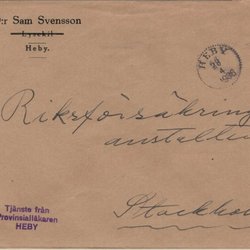 D:r Sam Svensson
Lysekil
Heby.
HEBY
28
4
1936
Riksförsäkring
anstalten
Stockho
Tjänste från
Provinsialläkaren
HEBY